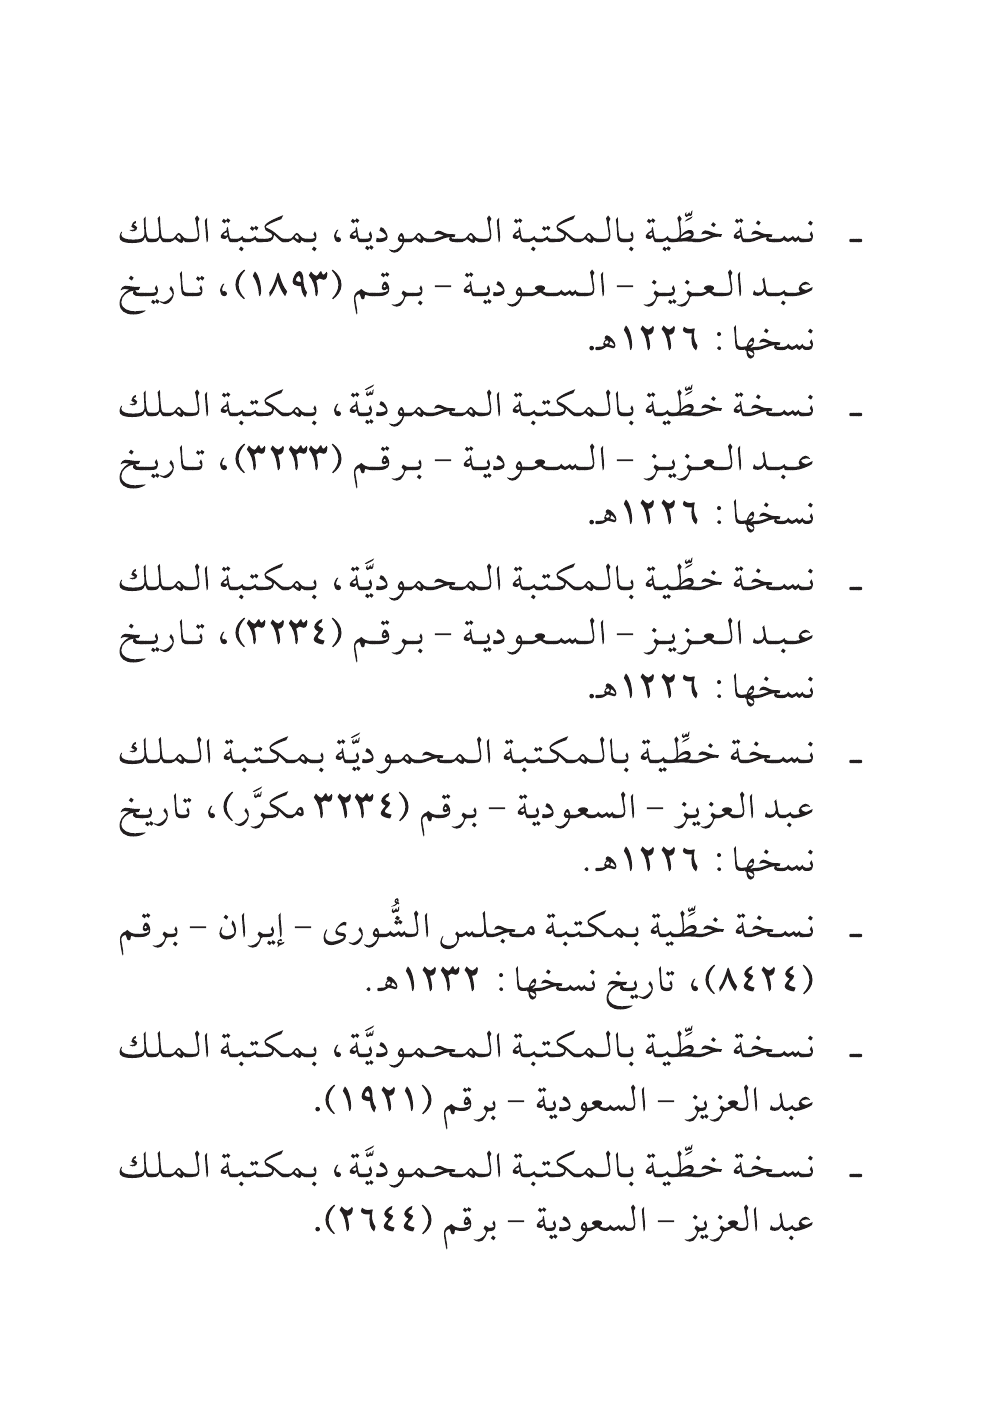 ـ نسخة خطِّية بالمكتبة المحمودية، بمكتبة الملك
عبد العزيز – السعودية – برقم (١٨٩٣)، تاريخ
نسخها: ١٢٢٦هـ.
ـ نسخة خطِّية بالمكتبة المحموديَّة، بمكتبة الملك
عبد العزيز – السعودية – برقم (٣٢٣٣)، تاريخ
نسخها: ١٢٢٦هـ.
ـ نسخة خطِّية بالمكتبة المحموديَّة، بمكتبة الملك
عبد العزيز – السعودية – برقم (٣٢٣٤)، تاريخ
نسخها: ١٢٢٦هـ.
ـ نسخة خطِّية بالمكتبة المحموديَّة بمكتبة الملك
عبد العزيز – السعودية – برقم (٣٢٣٤ مكرَّر)، تاريخ
نسخها: ١٢٢٦هـ.
ـ نسخة خطِّية بمكتبة مجلس الشُّورى – إيران – برقم
(٨٤٢٤)، تاريخ نسخها: ١٢٣٢هـ.
ـ نسخة خطِّية بالمكتبة المحموديَّة، بمكتبة الملك
عبد العزيز – السعودية – برقم (١٩٢١).
ـ نسخة خطِّية بالمكتبة المحموديَّة، بمكتبة الملك
عبد العزيز – السعودية – برقم (٢٦٤٤).